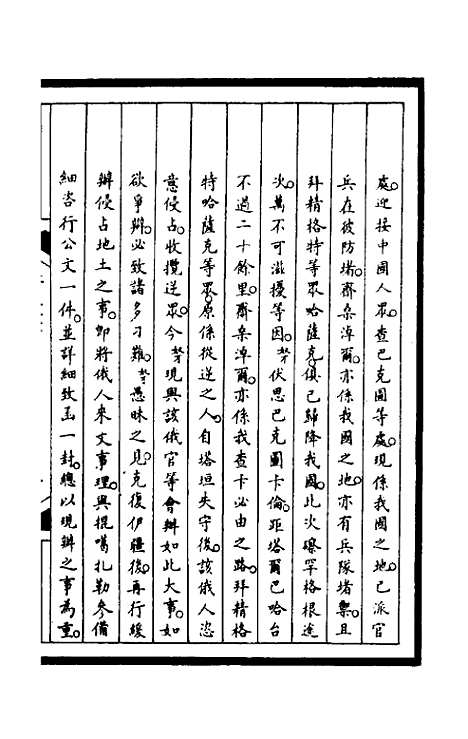 處。迎接中國人眾。查巴克圖等處。現係我國之地。已派官
兵在彼防堵。齋桑淖爾。亦係我國之地。亦有兵隊堵禦。且
拜精格特等眾哈薩克。俱已歸降我國。此次礤罕格根途
次。萬不可滋擾等因。𡘊伏思巴克圖卡倫。距塔爾巴哈台
不過二十餘里。齋桑淖爾。亦係我查卡必由之路。拜精格
特哈薩克等眾。原係從逆之人。自塔垣失守後。該俄人恣
意侵占。收攬逆眾。今𡘊現與該俄官等會辦如此大事。如
欲爭辦。必致諸多刁難。𡘊愚昧之見。克復伊疆後。再行緩
辦侵占地土之事。即將俄人來文事理。與棍噶扎勒參備
細咨行公文一件。並詳細致函一封。總以現辦之事為重。